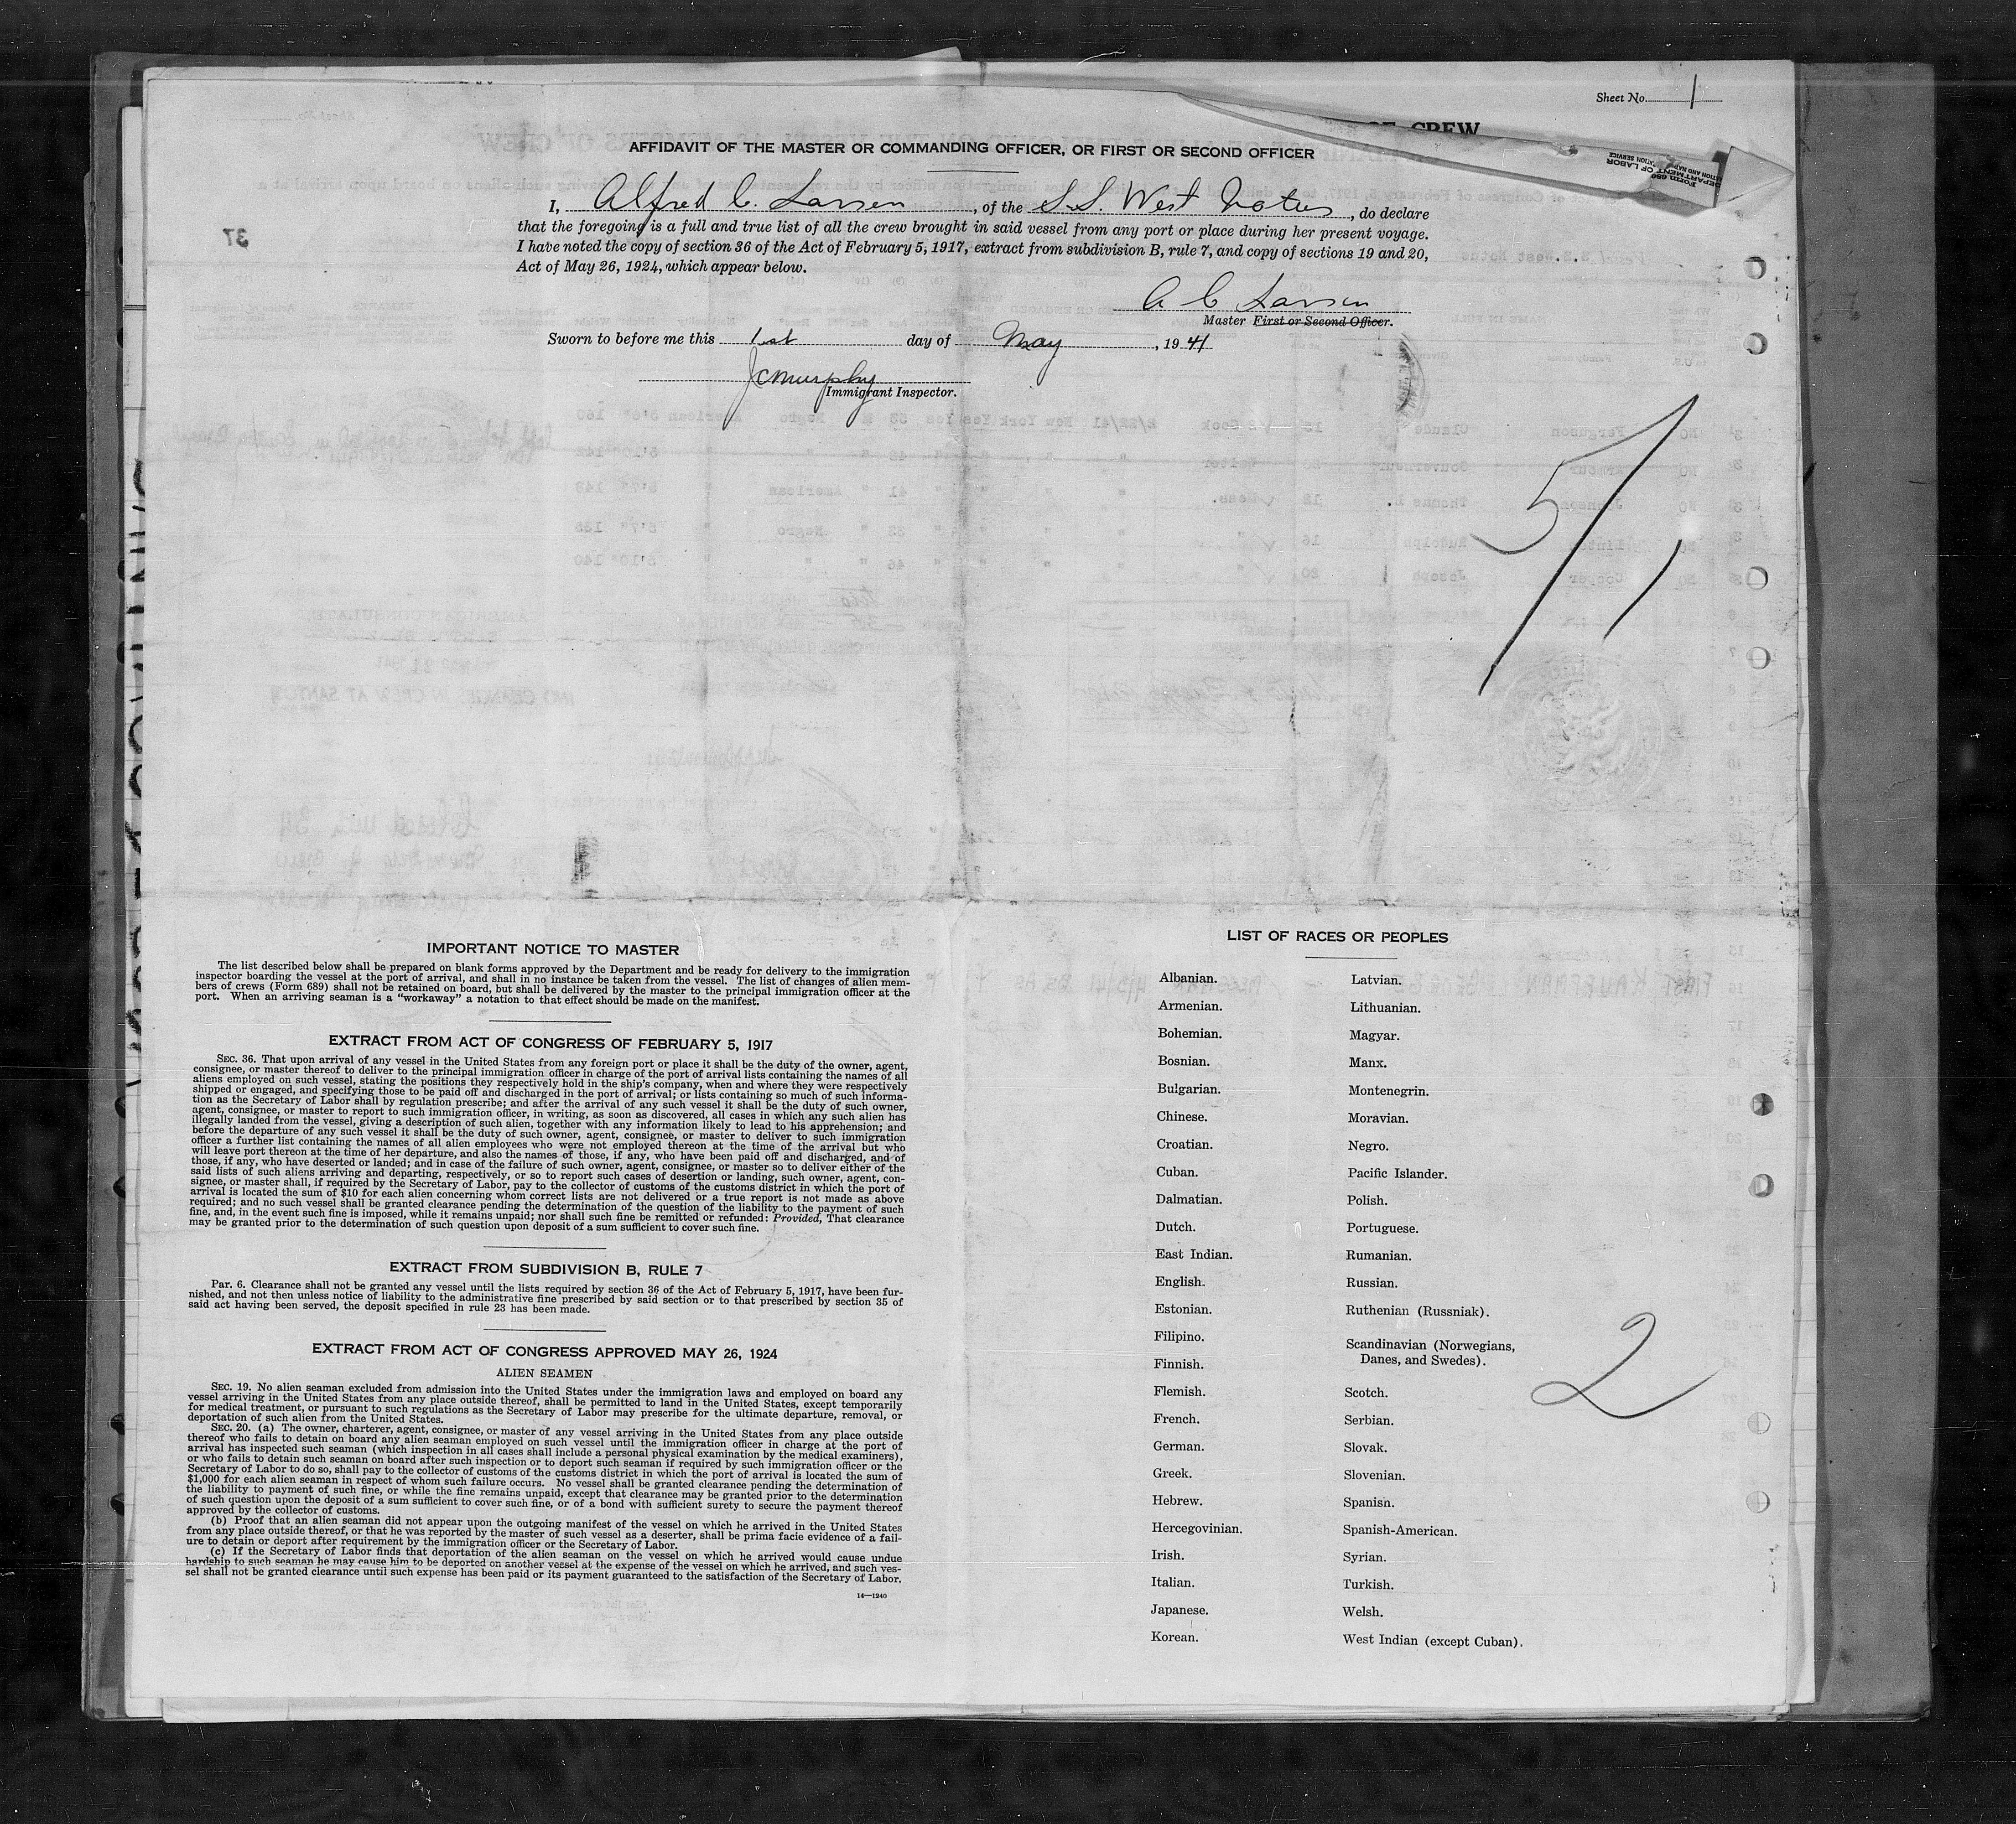 Sheet No. 1
OF CREW
AFFIDAVIT OF THE MASTER OR COMMANDING OFFICER, OR FIRST OR SECOND OFFICER
I, Alfred C. Larsen, of the S.S. West Notus, do declare
that the foregoing is a full and true list of all the crew brought in said vessel from any port or place during her present voyage.
I have noted the copy of section 36 of the Act of February 5, 1917, extract from subdivision B, rule 7, and copy of sections 19 and 20,
Act of May 26, 1924, which appear below.
A C Larsen
Master First or Second Officer.
Sworn to before me this 1st day of May, 1941
JCMurphy
Immigrant Inspector.
37
5/1
IMPORTANT NOTICE TO MASTER
The list described below shall be prepared on blank forms approved by the Department and be ready for delivery to the immigration
inspector boarding the vessel at the port of arrival, and shall in no instance be taken from the vessel. The list of changes of alien mem-
bers of crews (Form 689) shall not be retained on board, but shall be delivered by the master to the principal immigration officer at the
port. When an arriving seaman is a "workaway" a notation to that effect should be made on the manifest.
EXTRACT FROM ACT OF CONGRESS OF FEBRUARY 5, 1917
SEC. 36. That upon arrival of any vessel in the United States from any foreign port or place it shall be the duty of the owner, agent,
consignee, or master thereof to deliver to the principal immigration officer in charge of the port of arrival lists containing the names of all
aliens employed on such vessel, stating the positions they respectively hold in the ship's company, when and where they were respectively
shipped or engaged, and specifying those to be paid off and discharged in the port of arrival; or lists containing so much of such informa-
tion as the Secretary of Labor shall by regulation prescribe; and after the arrival of any such vessel it shall be the duty of such owner,
agent, consignee, or master to report to such immigration officer, in writing, as soon as discovered, all cases in which any such alien has
illegally landed from the vessel, giving a description of such alien, together with any information likely to lead to his apprehension; and
before the departure of any such vessel it shall be the duty of such owner, agent, consignee, or master to deliver to such immigration
officer a further list containing the names of all alien employees who were not employed thereon at the time of the arrival but who
will leave port thereon at the time of her departure, and also the names of those, if any, who have been paid off and discharged, and of
those, if any, who have deserted or landed; and in case of the failure of such owner, agent, consignee, or master so to deliver either of the
said lists of such aliens arriving and departing, respectively, or so to report such cases of desertion or landing, such owner, agent, con-
signee, or master shall, if required by the Secretary of Labor, pay to the collector of customs of the customs district in which the port of
arrival is located the sum of $10 for each alien concerning whom correct lists are not delivered or a true report is not made as above
required; and no such vessel shall be granted clearance pending the determination of the question of the liability to the payment of such
fine, and, in the event such fine is imposed, while it remains unpaid; nor shall such fine be remitted or refunded: Provided, That clearance
may be granted prior to the determination of such question upon deposit of a sum sufficient to cover such fine.
EXTRACT FROM SUBDIVISION B, RULE 7
Par. 6. Clearance shall not be granted any vessel until the lists required by section 36 of the Act of February 5, 1917, have been fur-
nished, and not then unless notice of liability to the administrative fine prescribed by said section or to that prescribed by section 35 of
said act having been served, the deposit specified in rule 23 has been made.
EXTRACT FROM ACT OF CONGRESS APPROVED MAY 26, 1924
ALIEN SEAMEN
SEC. 19. No alien seaman excluded from admission into the United States under the immigration laws and employed on board any
vessel arriving in the United States from any place outside thereof, shall be permitted to land in the United States, except temporarily
for medical treatment, or pursuant to such regulations as the Secretary of Labor may prescribe for the ultimate departure, removal, or
deportation of such alien from the United States.
SEC. 20. (a) The owner, charterer, agent, consignee, or master of any vessel arriving in the United States from any place outside
thereof who fails to detain on board any alien seaman employed on such vessel until the immigration officer in charge at the port of
arrival has inspected such seaman (which inspection in all cases shall include a personal physical examination by the medical examiners),
or who fails to detain such seaman on board after such inspection or to deport such seaman if required by such immigration officer or the
Secretary of Labor to do so, shall pay to the collector of customs of the customs district in which the port of arrival is located the sum of
$1,000 for each alien seaman in respect of whom such failure occurs. No vessel shall be granted clearance pending the determination of
the liability to payment of such fine, or while the fine remains unpaid, except that clearance may be granted prior to the determination
of such question upon the deposit of a sum sufficient to cover such fine, or of a bond with sufficient surety to secure the payment thereof
approved by the collector of customs.
(b) Proof that an alien seaman did not appear upon the outgoing manifest of the vessel on which he arrived in the United States
from any place outside thereof, or that he was reported by the master of such vessel as a deserter, shall be prima facie evidence of a fail-
ure to detain or deport after requirement by the immigration officer or the Secretary of Labor.
(c) If the Secretary of Labor finds that deportation of the alien seaman on the vessel on which he arrived would cause undue
hardship to such seaman he may cause him to be deported on another vessel at the expense of the vessel on which he arrived, and such ves-
sel shall not be granted clearance until such expense has been paid or its payment guaranteed to the satisfaction of the Secretary of Labor.
14—1240
LIST OF RACES OR PEOPLES
Albanian.
Armenian.
Bohemian.
Bosnian.
Bulgarian.
Chinese.
Croatian.
Cuban.
Dalmatian.
Dutch.
East Indian.
English.
Estonian.
Filipino.
Finnish.
Flemish.
French.
German.
Greek.
Hebrew.
Hercegovinian.
Irish.
Italian.
Japanese.
Korean.
Latvian.
Lithuanian.
Magyar.
Manx.
Montenegrin.
Moravian.
Negro.
Pacific Islander.
Polish.
Portuguese.
Rumanian.
Russian.
Ruthenian (Russniak).
Scandinavian (Norwegians,
Danes, and Swedes).
Scotch.
Serbian.
Slovak.
Slovenian.
Spanish.
Spanish-American.
Syrian.
Turkish.
Welsh.
West Indian (except Cuban).
2